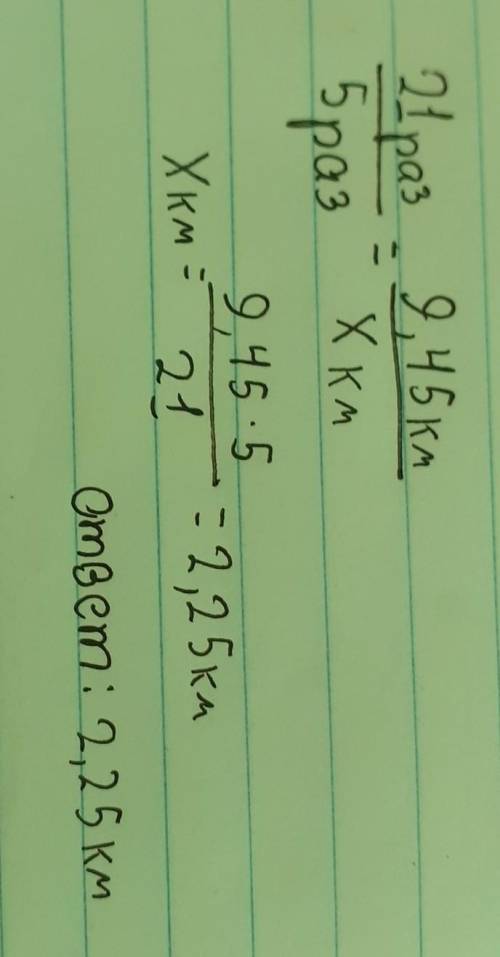 21 раз / 5 раз = 9,45 км / X км
X км = 9,45 · 5 / 21 = 2,25 км
Ответ: 2,25 км